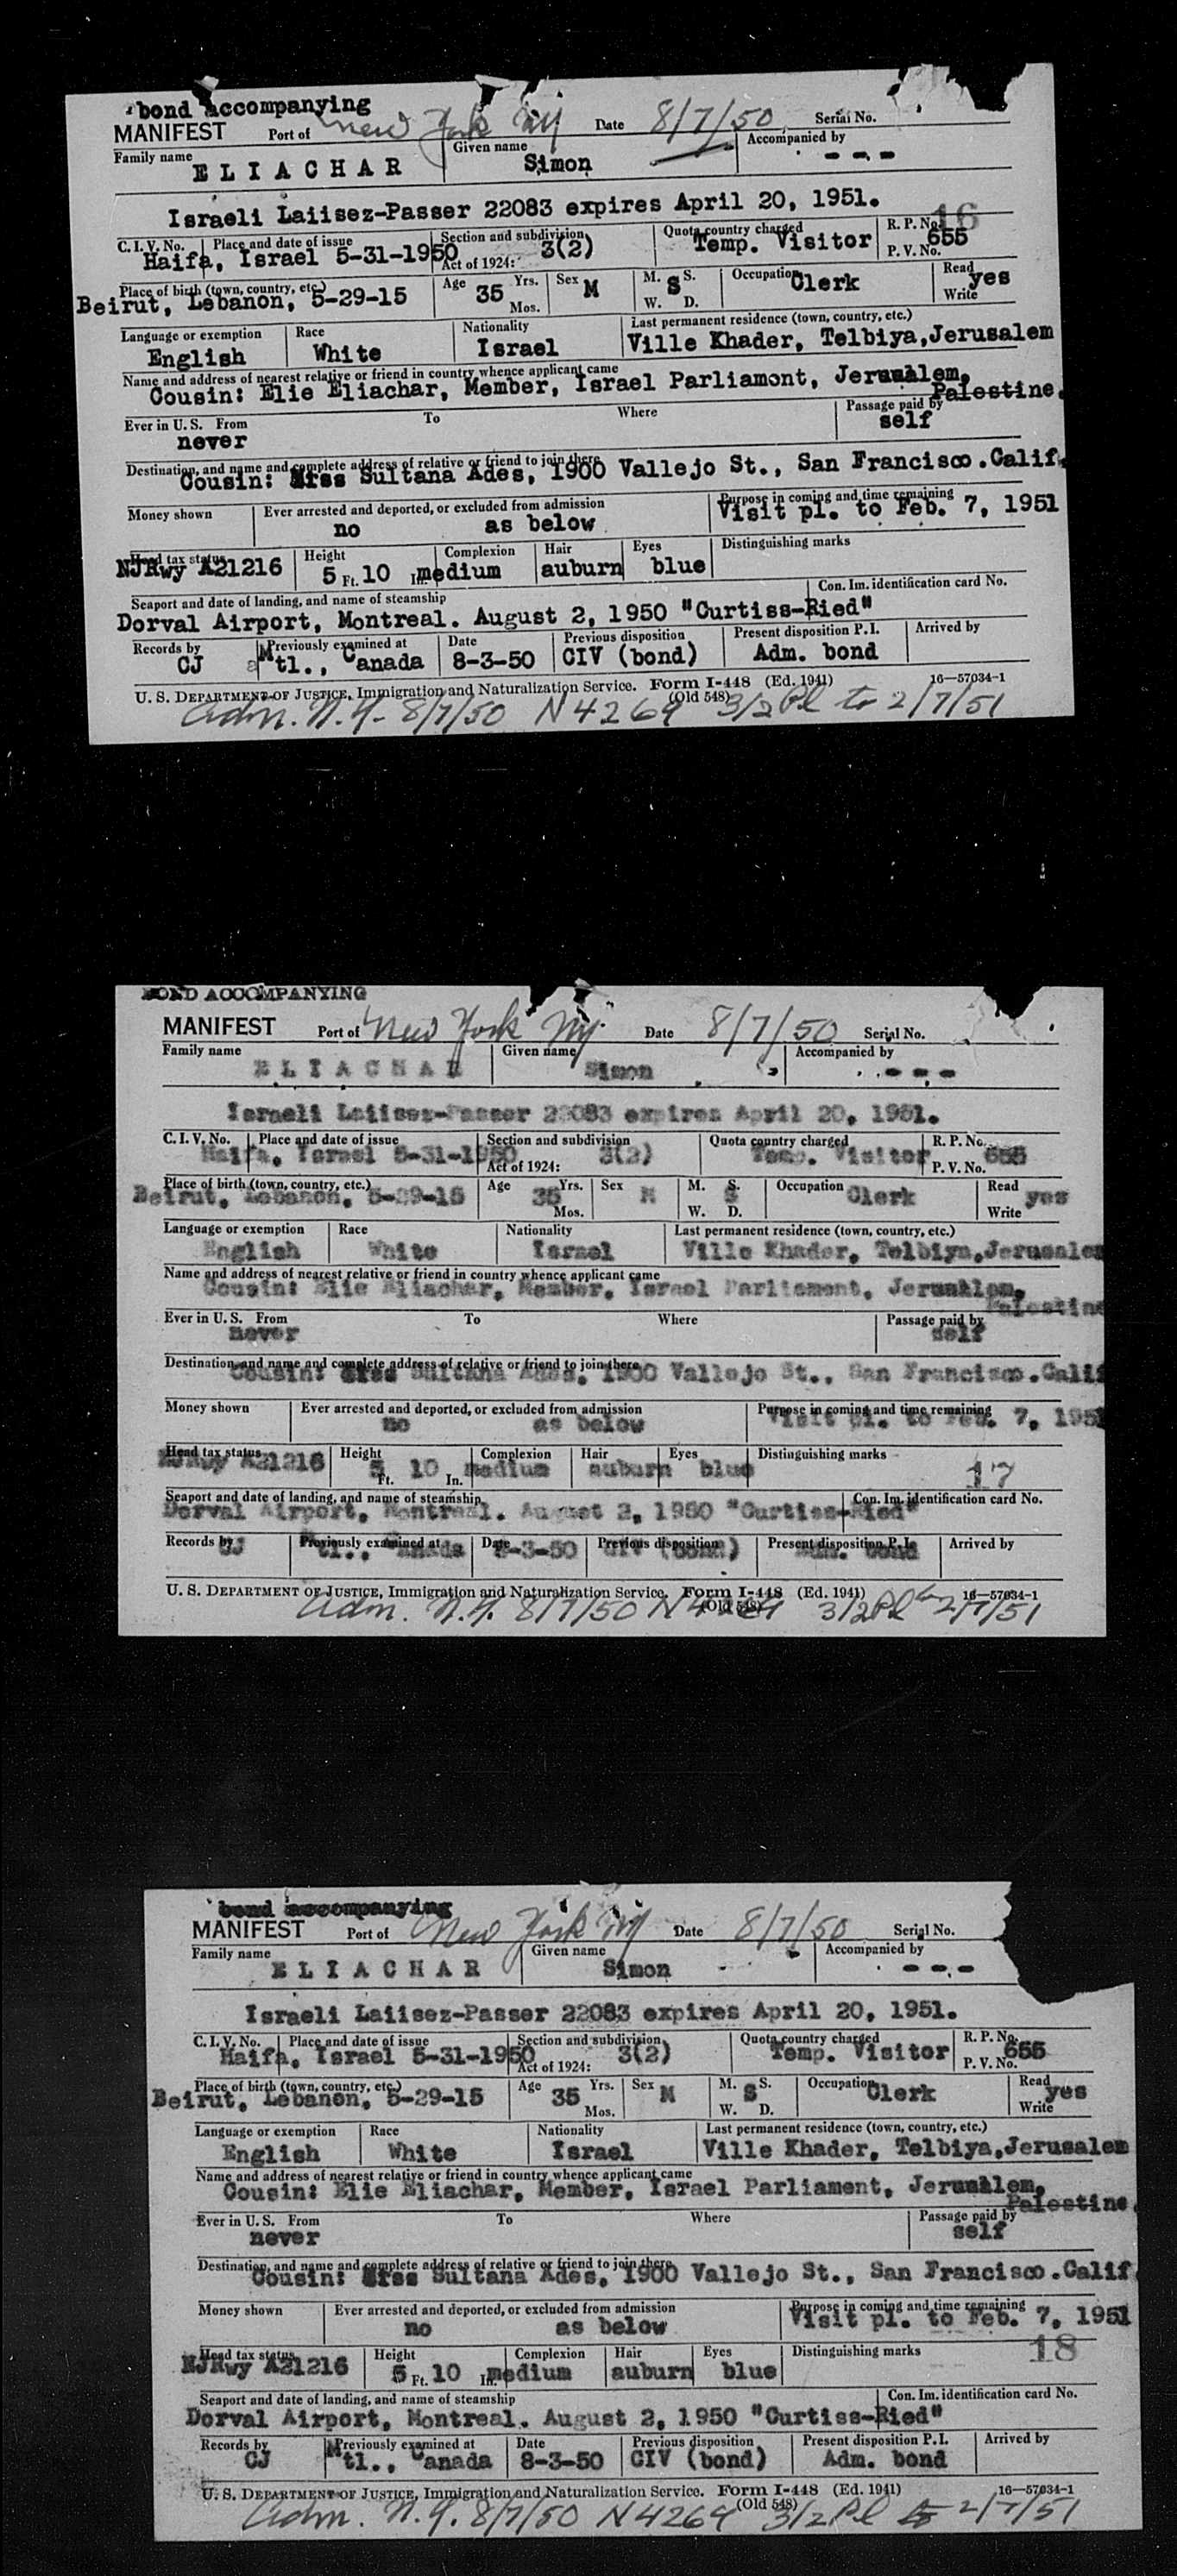 bond accompanying
MANIFEST Port of New York NY Date 8/7/50 Serial No.
Family name Given name Accompanied by
ELIACHAR Simon ---
Israeli Laiisez-Passer 22083 expires April 20, 1951.
16
C. I. V. No. Place and date of issue Section and subdivision Quota country charged R. P. No.
Haifa, Israel 5-31-1950 Act of 1924: 3(2) Temp. Visitor 655 P. V. No.
Place of birth (town, country, etc.) Age Yrs. Sex M. S. Occupation Read
Beirut, Lebanon, 5-29-15 35 Mos. M S W. D. Clerk yes Write
Language or exemption Race Nationality Last permanent residence (town, country, etc.)
English White Israel Ville Khader, Telbiya,Jerusalem
Name and address of nearest relative or friend in country whence applicant came
Cousin: Elie Eliachar, Member, Israel Parliamont, Jerusalem,
Palestine.
Ever in U. S. From To Where Passage paid by
never self
Destination, and name and complete address of relative or friend to join there
Cousin: Sultana Ades, 1900 Vallejo St., San Francisco.Calif.
Money shown Ever arrested and deported, or excluded from admission Purpose in coming and time remaining
no as below Visit pl. to Feb. 7, 1951
Head tax status Height Complexion Hair Eyes Distinguishing marks
NJRwy A21216 5 Ft. 10 In. medium auburn blue
Seaport and date of landing, and name of steamship Con. Im. identification card No.
Dorval Airport, Montreal. August 2, 1950 "Curtiss-Ried"
Records by Previously examined at Date Previous disposition Present disposition P. I. Arrived by
CJ Mtl., Canada 8-3-50 CIV (bond) Adm. bond
U. S. DEPARTMENT OF JUSTICE, Immigration and Naturalization Service. Form I-448 (Ed. 1941) 16—57034-1
(Old 548)
Adm. N.Y. 8/7/50 N4269 3/2 Pl to 2/7/51
BOND ACCOMPANYING
MANIFEST Port of New York NY Date 8/7/50 Serial No.
Family name Given name Accompanied by
ELIACHAR Simon ---
Israeli Laiisez-Passer 22083 expires April 20, 1951.
C. I. V. No. Place and date of issue Section and subdivision Quota country charged R. P. No.
Haifa, Israel 5-31-1950 Act of 1924: 3(2) Temp. Visitor 655 P. V. No.
Place of birth (town, country, etc.) Age Yrs. Sex M. S. Occupation Read
Beirut, Lebanon, 5-29-15 35 Mos. M S W. D. Clerk yes Write
Language or exemption Race Nationality Last permanent residence (town, country, etc.)
English White Israel Ville Khader, Telbiya,Jerusalem
Name and address of nearest relative or friend in country whence applicant came
Cousin: Elie Eliachar, Member, Israel Parliament, Jerusalem,
Palestine
Ever in U. S. From To Where Passage paid by
never self
Destination, and name and complete address of relative or friend to join there
Cousin: Sultana Ades, 1900 Vallejo St., San Francisco.Calif
Money shown Ever arrested and deported, or excluded from admission Purpose in coming and time remaining
no as below Visit pl. to Feb. 7, 1951
Head tax status Height Complexion Hair Eyes Distinguishing marks
NJRwy A21216 5 Ft. 10 In. medium auburn blue 17
Seaport and date of landing, and name of steamship Con. Im. identification card No.
Dorval Airport, Montreal. August 2, 1950 "Curtiss-Ried"
Records by Previously examined at Date Previous disposition Present disposition P. I. Arrived by
CJ Mtl., Canada 8-3-50 CIV (bond) Adm. bond
U. S. DEPARTMENT OF JUSTICE, Immigration and Naturalization Service. Form I-448 (Ed. 1941) 16—57034-1
(Old 548)
Adm. N.Y. 8/7/50 N4269 3/2 Pl to 2/7/51
bond accompanying
MANIFEST Port of New York NY Date 8/7/50 Serial No.
Family name Given name Accompanied by
ELIACHAR Simon ---
Israeli Laiisez-Passer 22083 expires April 20, 1951.
C. I. V. No. Place and date of issue Section and subdivision Quota country charged R. P. No.
Haifa, Israel 5-31-1950 Act of 1924: 3(2) Temp. Visitor 655 P. V. No.
Place of birth (town, country, etc.) Age Yrs. Sex M. S. Occupation Read
Beirut, Lebanon, 5-29-15 35 Mos. M S W. D. Clerk yes Write
Language or exemption Race Nationality Last permanent residence (town, country, etc.)
English White Israel Ville Khader, Telbiya,Jerusalem
Name and address of nearest relative or friend in country whence applicant came
Cousin: Elie Eliachar, Member, Israel Parliament, Jerusalem,
Palestine.
Ever in U. S. From To Where Passage paid by
never self
Destination, and name and complete address of relative or friend to join there
Cousin: Sultana Ades, 1900 Vallejo St., San Francisco.Calif
Money shown Ever arrested and deported, or excluded from admission Purpose in coming and time remaining
no as below Visit pl. to Feb. 7, 1951
Head tax status Height Complexion Hair Eyes Distinguishing marks 18
NJRwy A21216 5 Ft. 10 In. medium auburn blue
Seaport and date of landing, and name of steamship Con. Im. identification card No.
Dorval Airport, Montreal. August 2, 1950 "Curtiss-Ried"
Records by Previously examined at Date Previous disposition Present disposition P. I. Arrived by
CJ Mtl., Canada 8-3-50 CIV (bond) Adm. bond
U. S. DEPARTMENT OF JUSTICE, Immigration and Naturalization Service. Form I-448 (Ed. 1941) 16—57034-1
(Old 548)
Adm. N.Y. 8/7/50 N4269 3/2 Pl to 2/7/51